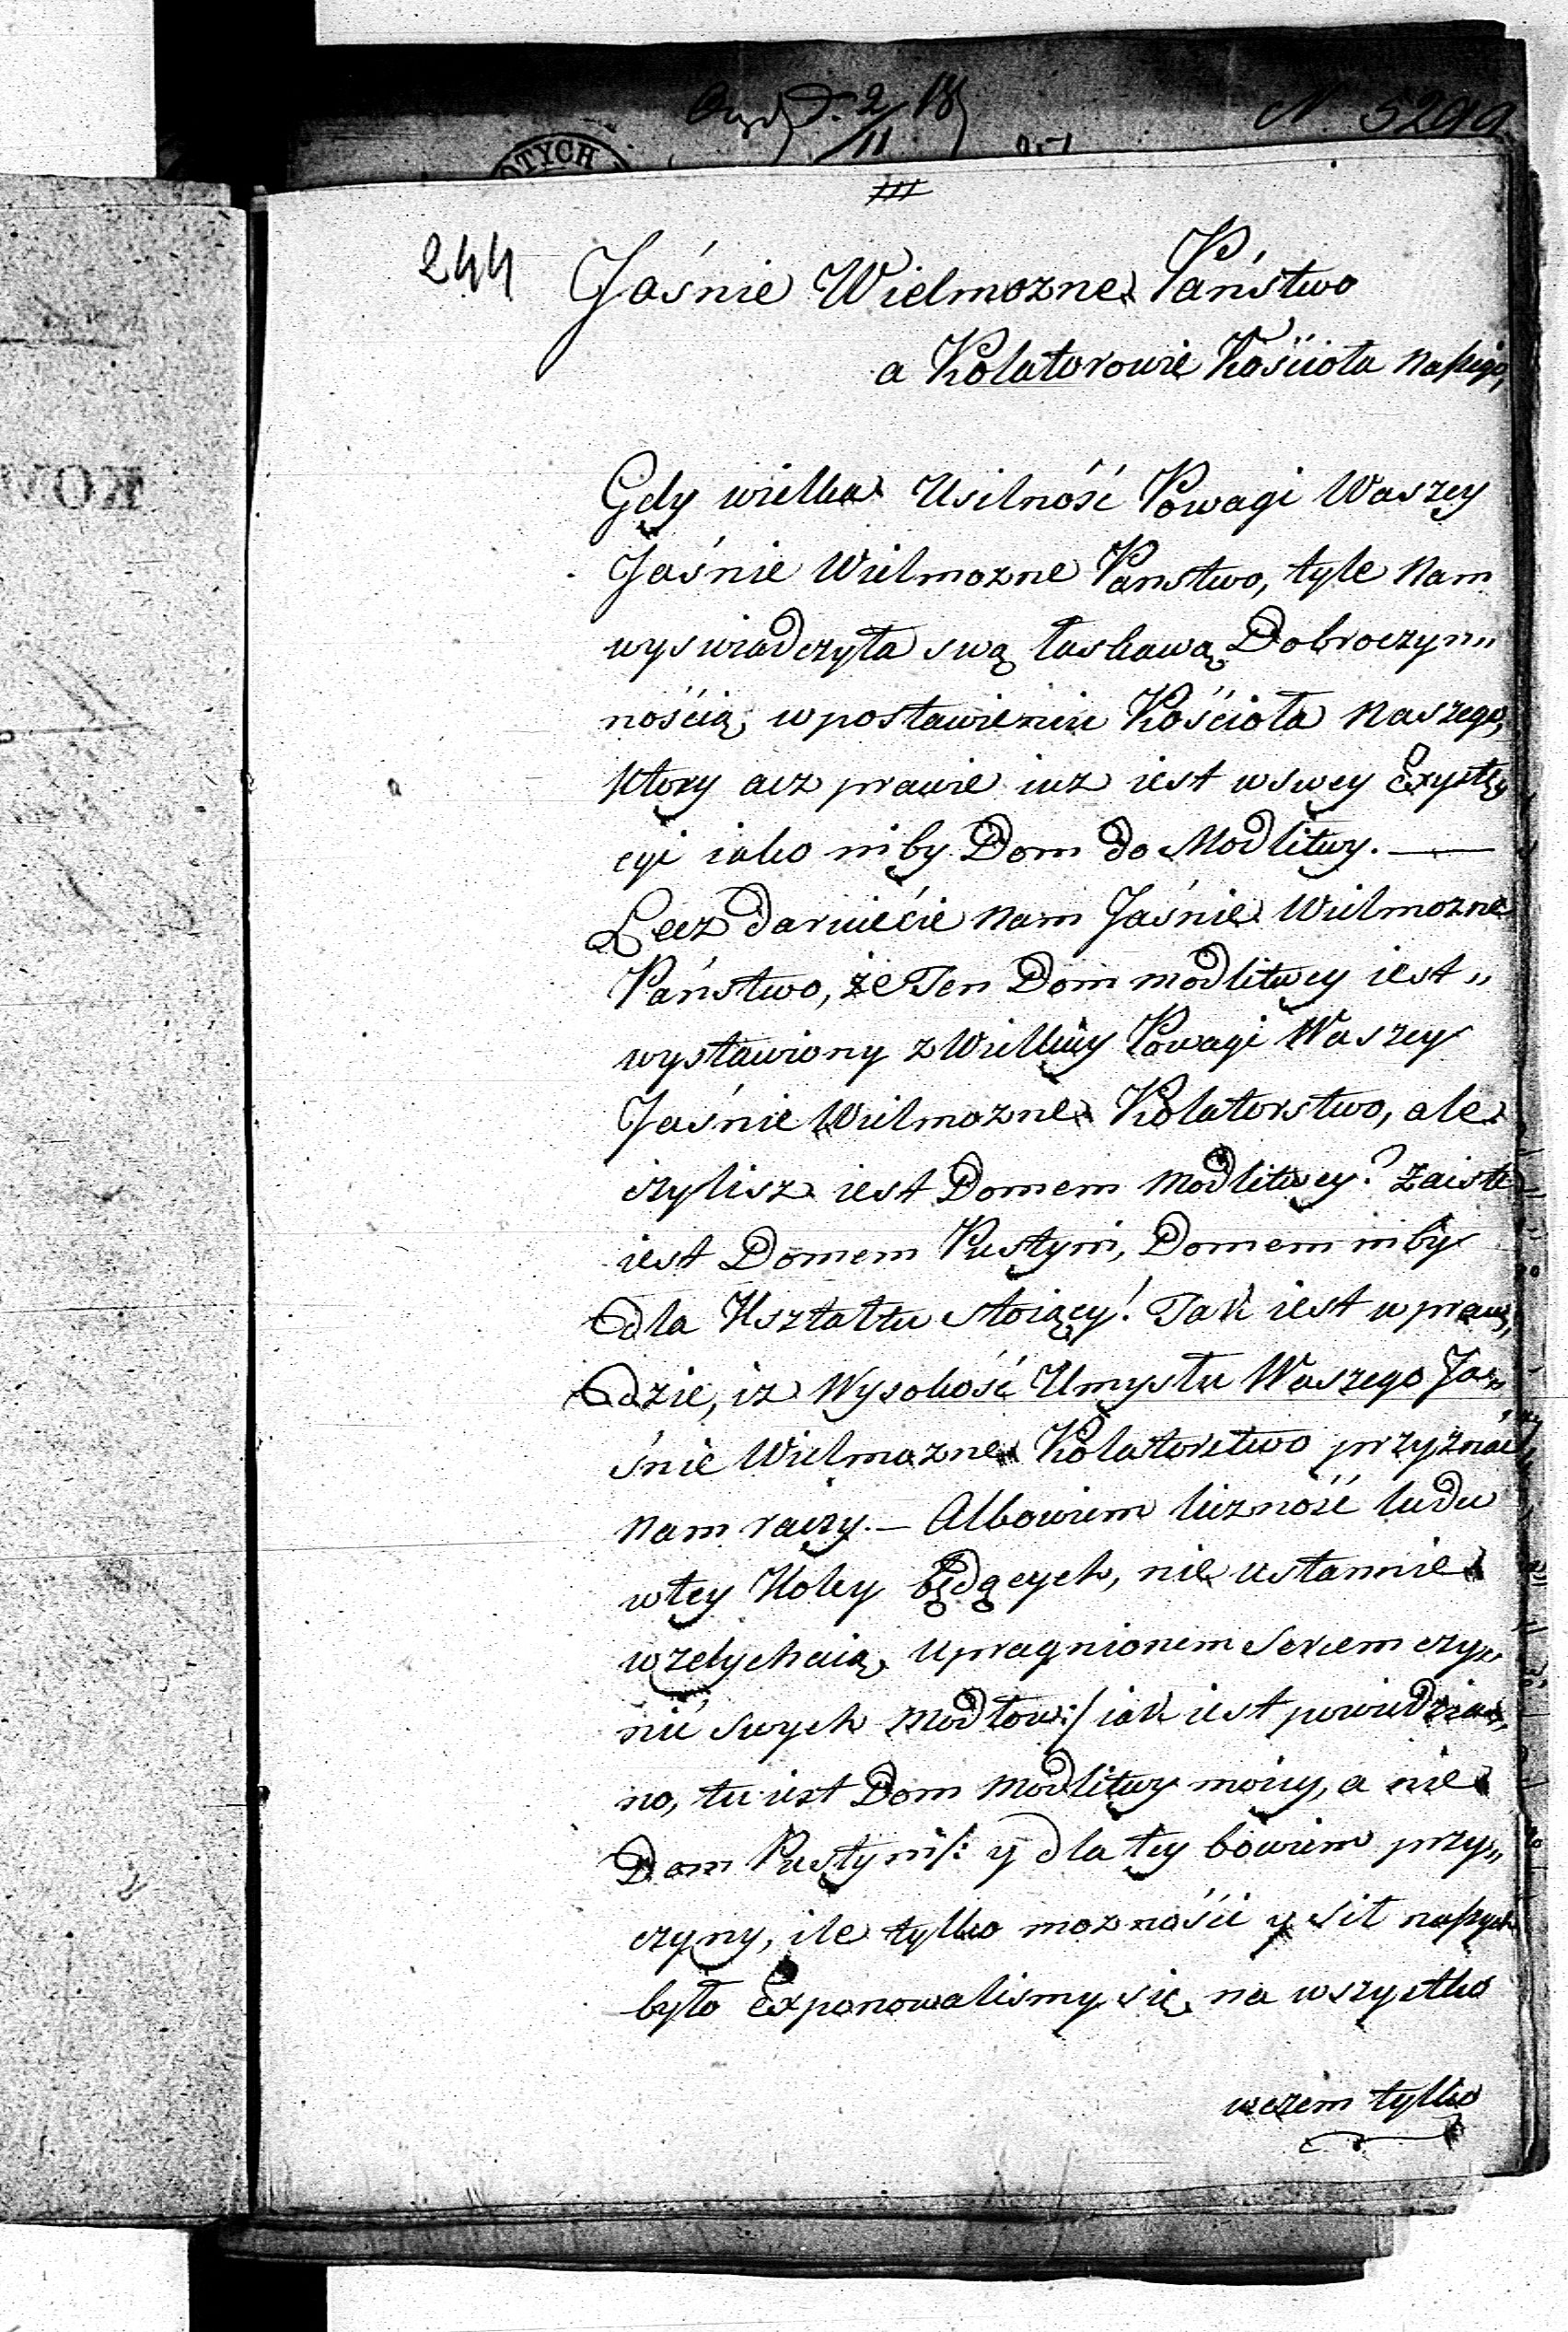 N 5299
OTYCH
244
Jaśnie Wielmozne Państwo
a Kolatorowie Kościoła naszego,
Gdy wielka Usilność Powagi Waszey
Jaśnie Wielmozne Panstwo, tyle nam
wyswiadczyła swą łaskawą Dobroczyn„
nością, wpostawieniu Kościoła naszego,
ktory acz prawie iuz iest wswey Exystę„
cyi iako niby Dom do Modlitwy. —
Lecz daruiecie nam Jaśnie Wielmozne
Państwo, że Ten Dom modlitwy iest„
wystawiony z Wielkiey Powagi Waszey
Jaśnie Wielmozne Kolatorstwo, ale
czylisz iest Domem Modlitwy? Zaiste
iest Domem Pustyni, Domem niby
dla Kształtu stoiący! Tak iest wpraw„
dzie, iz Wysokość Umysłu Waszego Ja„
śnie Wielmozne Kolatorstwo przyznać
nam raczy. — Albowiem liczność ludu
wtey Koley będących, nie ustannie
wzdychaią, upragnionem Sercem czy„
nić swych modłow :/ iak iest powiedzia„
no, tu iest Dom Modlitwy moiey, a nie
Dom Pustyni /: y dla tey bowiem przy„
czyny, ile tylko moznośći y sił naszych
było Exponowalismy się, na wszystko
wczem tylko